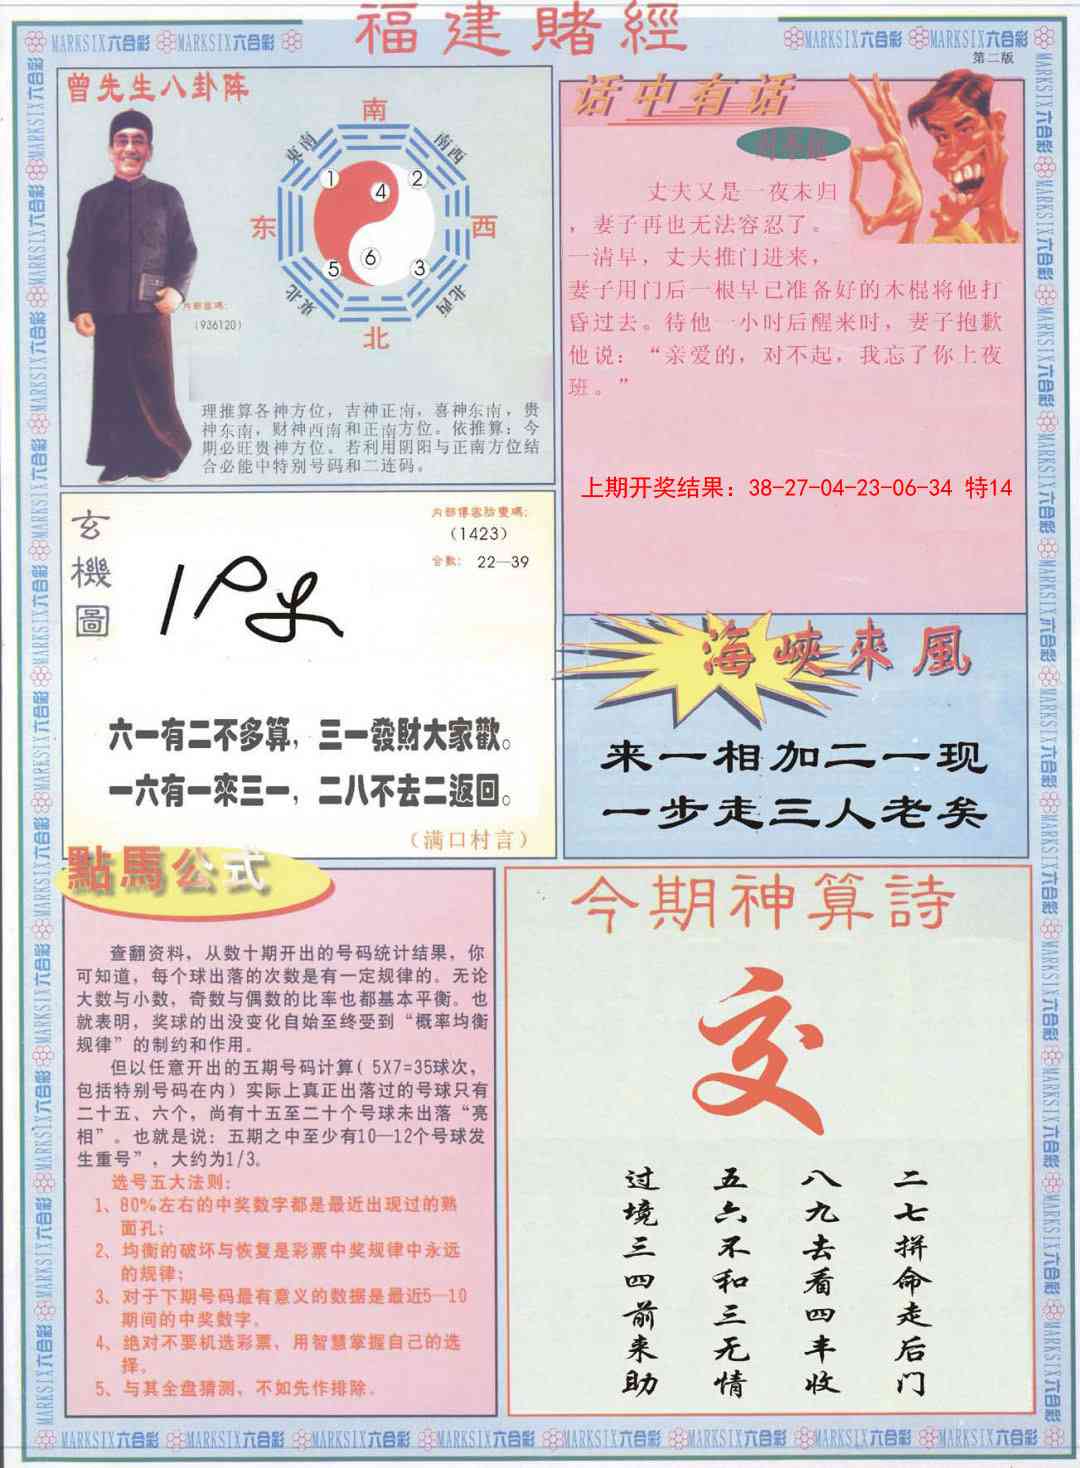 福建賭經
MARKSIX六合彩 MARKSIX六合彩
MARKSIX六合彩 MARKSIX六合彩
第二版
曾先生八卦阵
南
東南
南西
1
4
2
东
西
5
6
3
東北
北西
北
内部密碼:
(936120)
理推算各神方位，吉神正南，喜神东南，贵
神东南，财神西南和正南方位。依推算：今
期必旺贵神方位。若利用阴阳与正南方位结
合必能中特别号码和二连码。
话中有话
丈夫又是一夜未归
，妻子再也无法容忍了。
一清早，丈夫推门进来，
妻子用门后一根早已准备好的木棍将他打
昏过去。待他一小时后醒来时，妻子抱歉
他说：“亲爱的，对不起，我忘了你上夜
班。”
上期开奖结果：38-27-04-23-06-34 特14
玄機圖
(1423)
合數: 22—39
六一有二不多算，三一發財大家歡。
一六有一來三一，二八不去二返回。
（满口村言）
海峽來風
来一相加二一现
一步走三人老矣
點馬公式
查翻资料，从数十期开出的号码统计结果，你
可知道，每个球出落的次数是有一定规律的。无论
大数与小数，奇数与偶数的比率也都基本平衡。也
就表明，奖球的出没变化自始至终受到“概率均衡
规律”的制约和作用。
但以任意开出的五期号码计算( 5X7=35球次，
包括特别号码在内）实际上真正出落过的号球只有
二十五、六个，尚有十五至二十个号球未出落“亮
相”。也就是说：五期之中至少有10—12个号球发
生重号”，大约为1/3。
选号五大法则:
1、80%左右的中奖数字都是最近出现过的熟
面孔;
2、均衡的破坏与恢复是彩票中奖规律中永远
的规律;
3、对于下期号码最有意义的数据是最近5—10
期间的中奖数字。
4、绝对不要机选彩票，用智慧掌握自己的选
择。
5、与其全盘猜测，不如先作排除。
今期神算詩
交
二七拼命走后门
八九去看四丰收
五六不和三无情
过境三四前来助